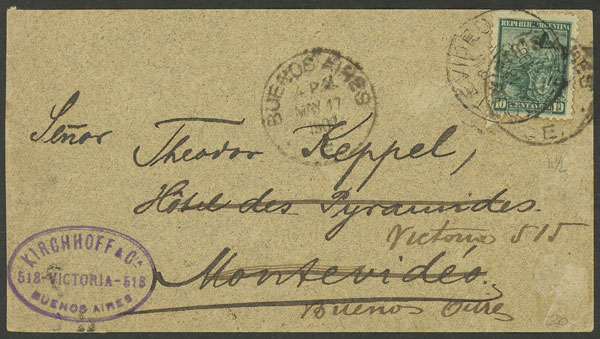 REPUBLICA ARGENTINA
10 CENTAVOS 10
BUENOS AIRES
4 P.M.
NOV 17
Señor Theodor Keppel,
Hôtel des Pyramides.
Victoria 515
Montevidéo.
Buenos Aires
KIRCHHOFF & Cª
518-VICTORIA-518
BUENOS AIRES